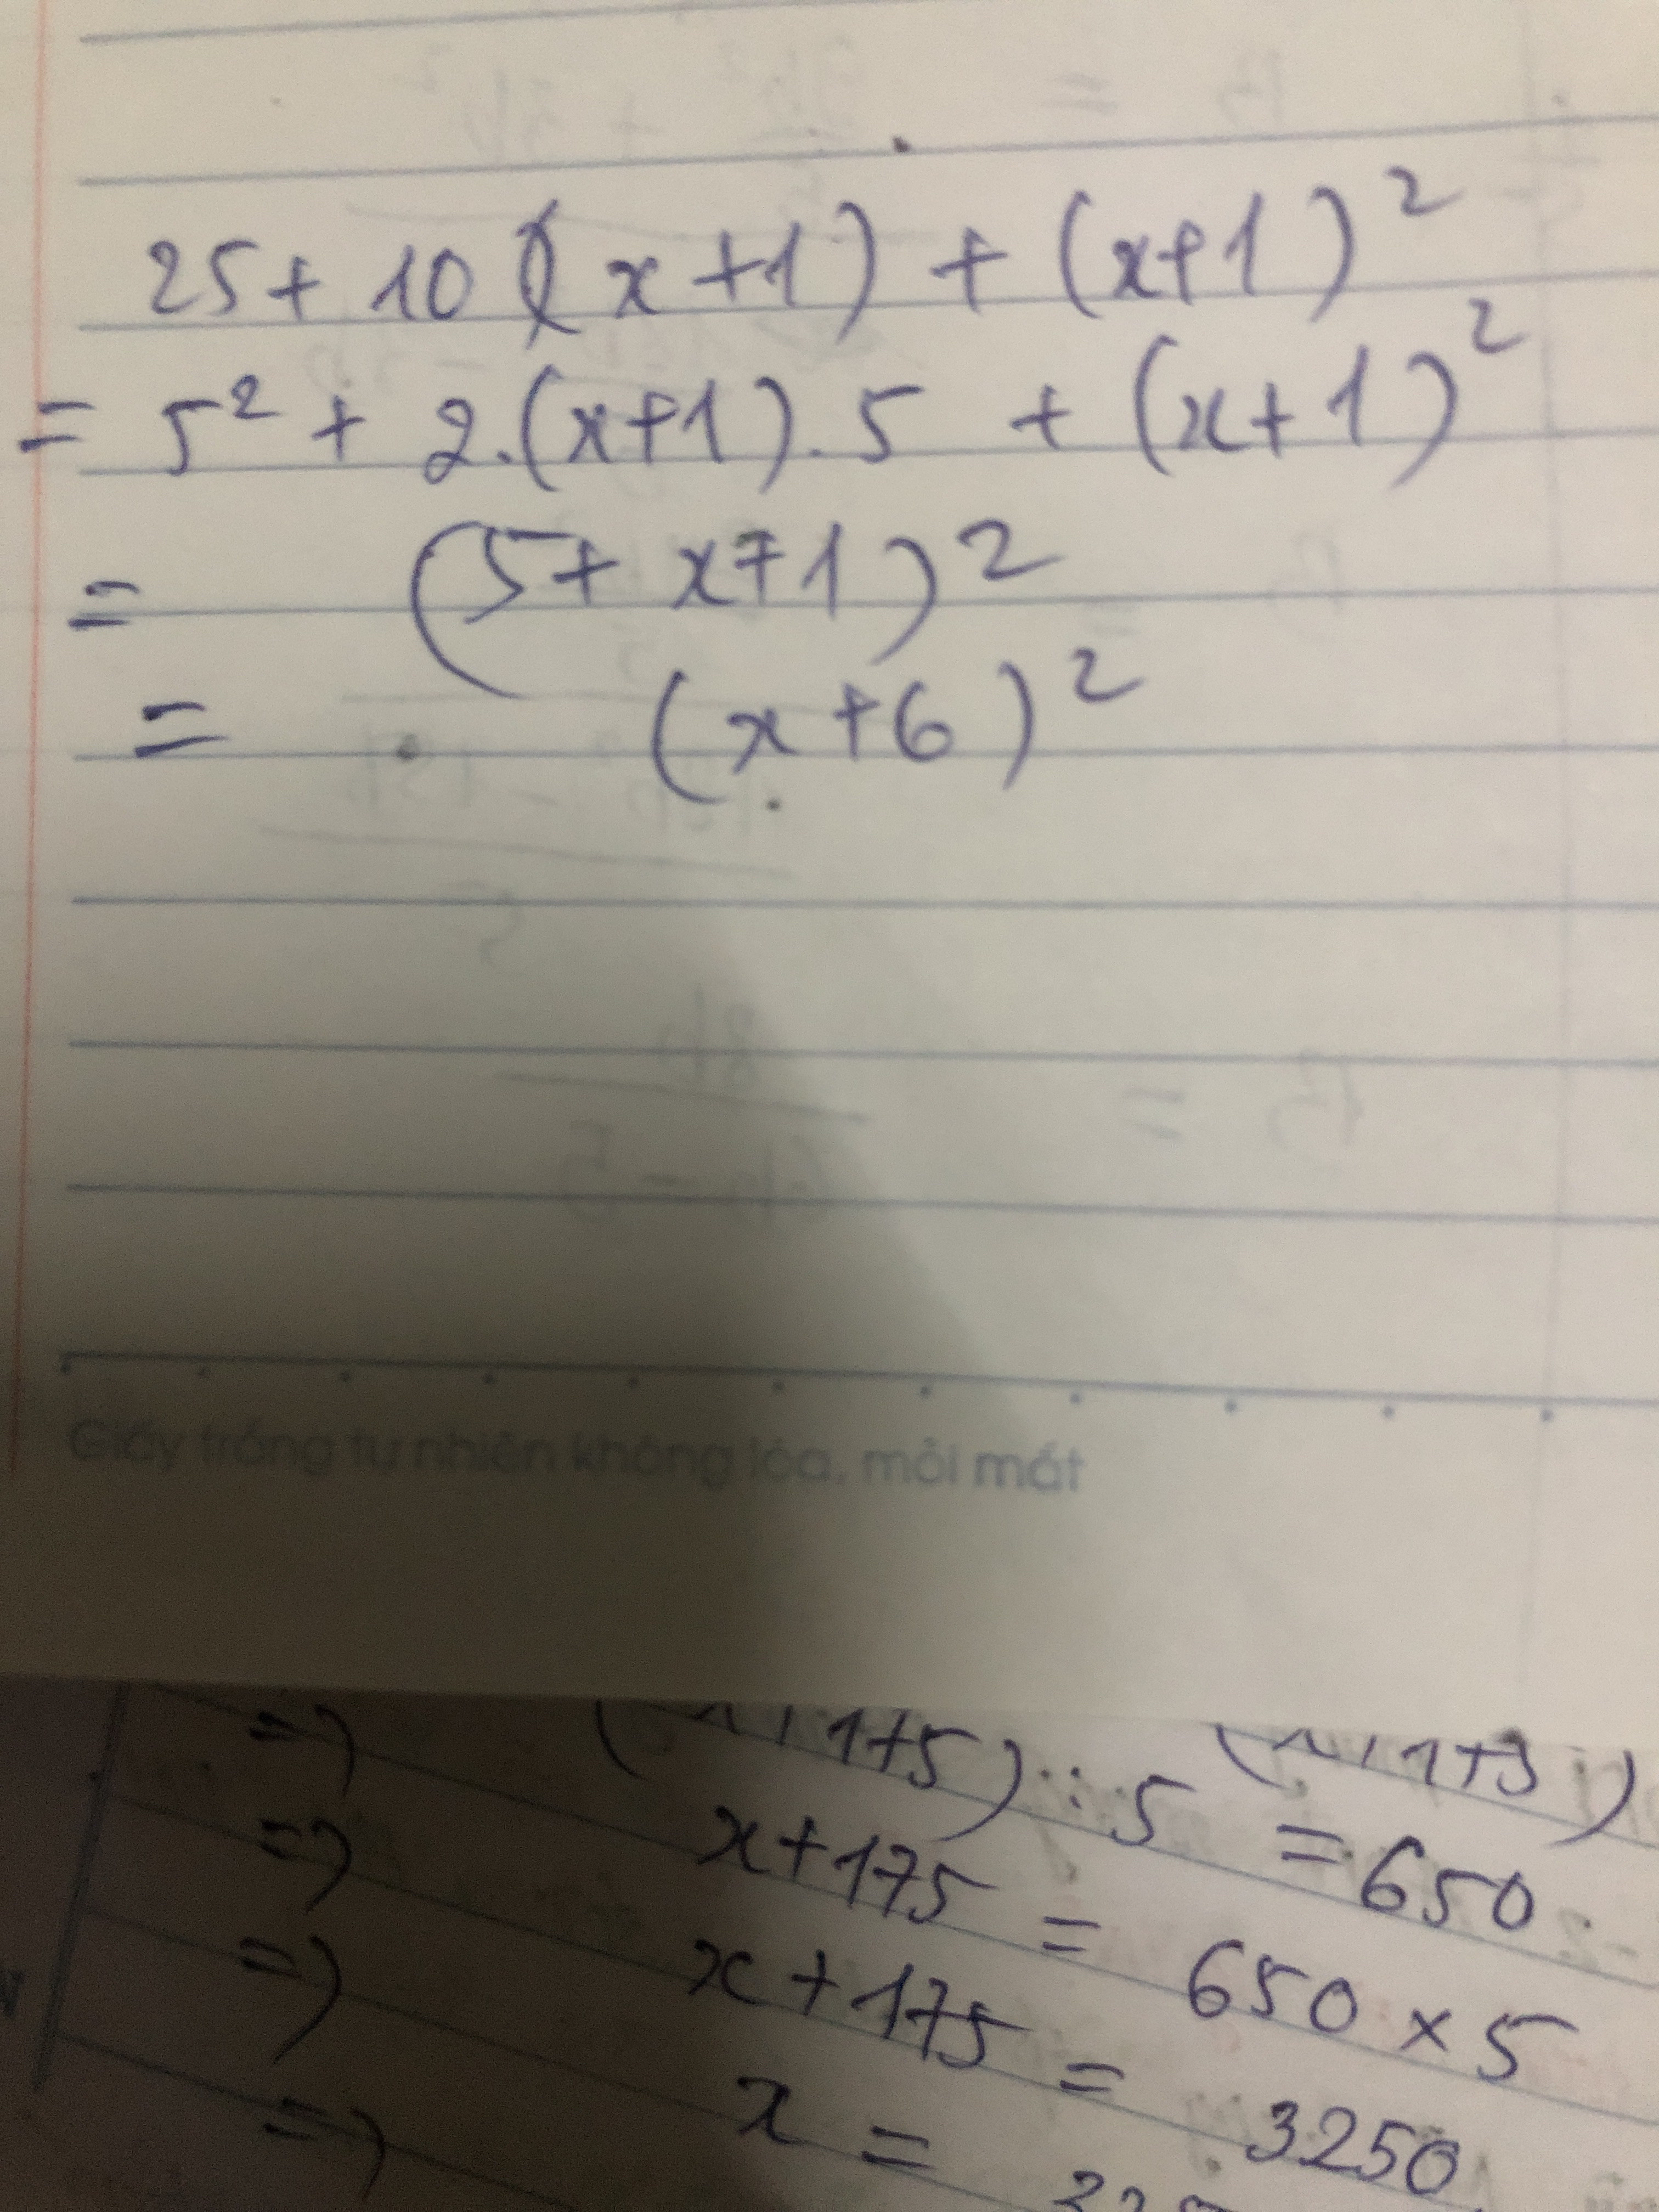 25 + 10 (x+1) + (x+1)²
= 5² + 2.(x+1).5 + (x+1)²
= (5+ x+1)²
= (x+6)²
Giấy trắng tự nhiên không lóa, mỏi mắt
=> 1+5) : 5 = 650
=> x+175 = 650 × 5
=> x+175 = 3250
=> x =